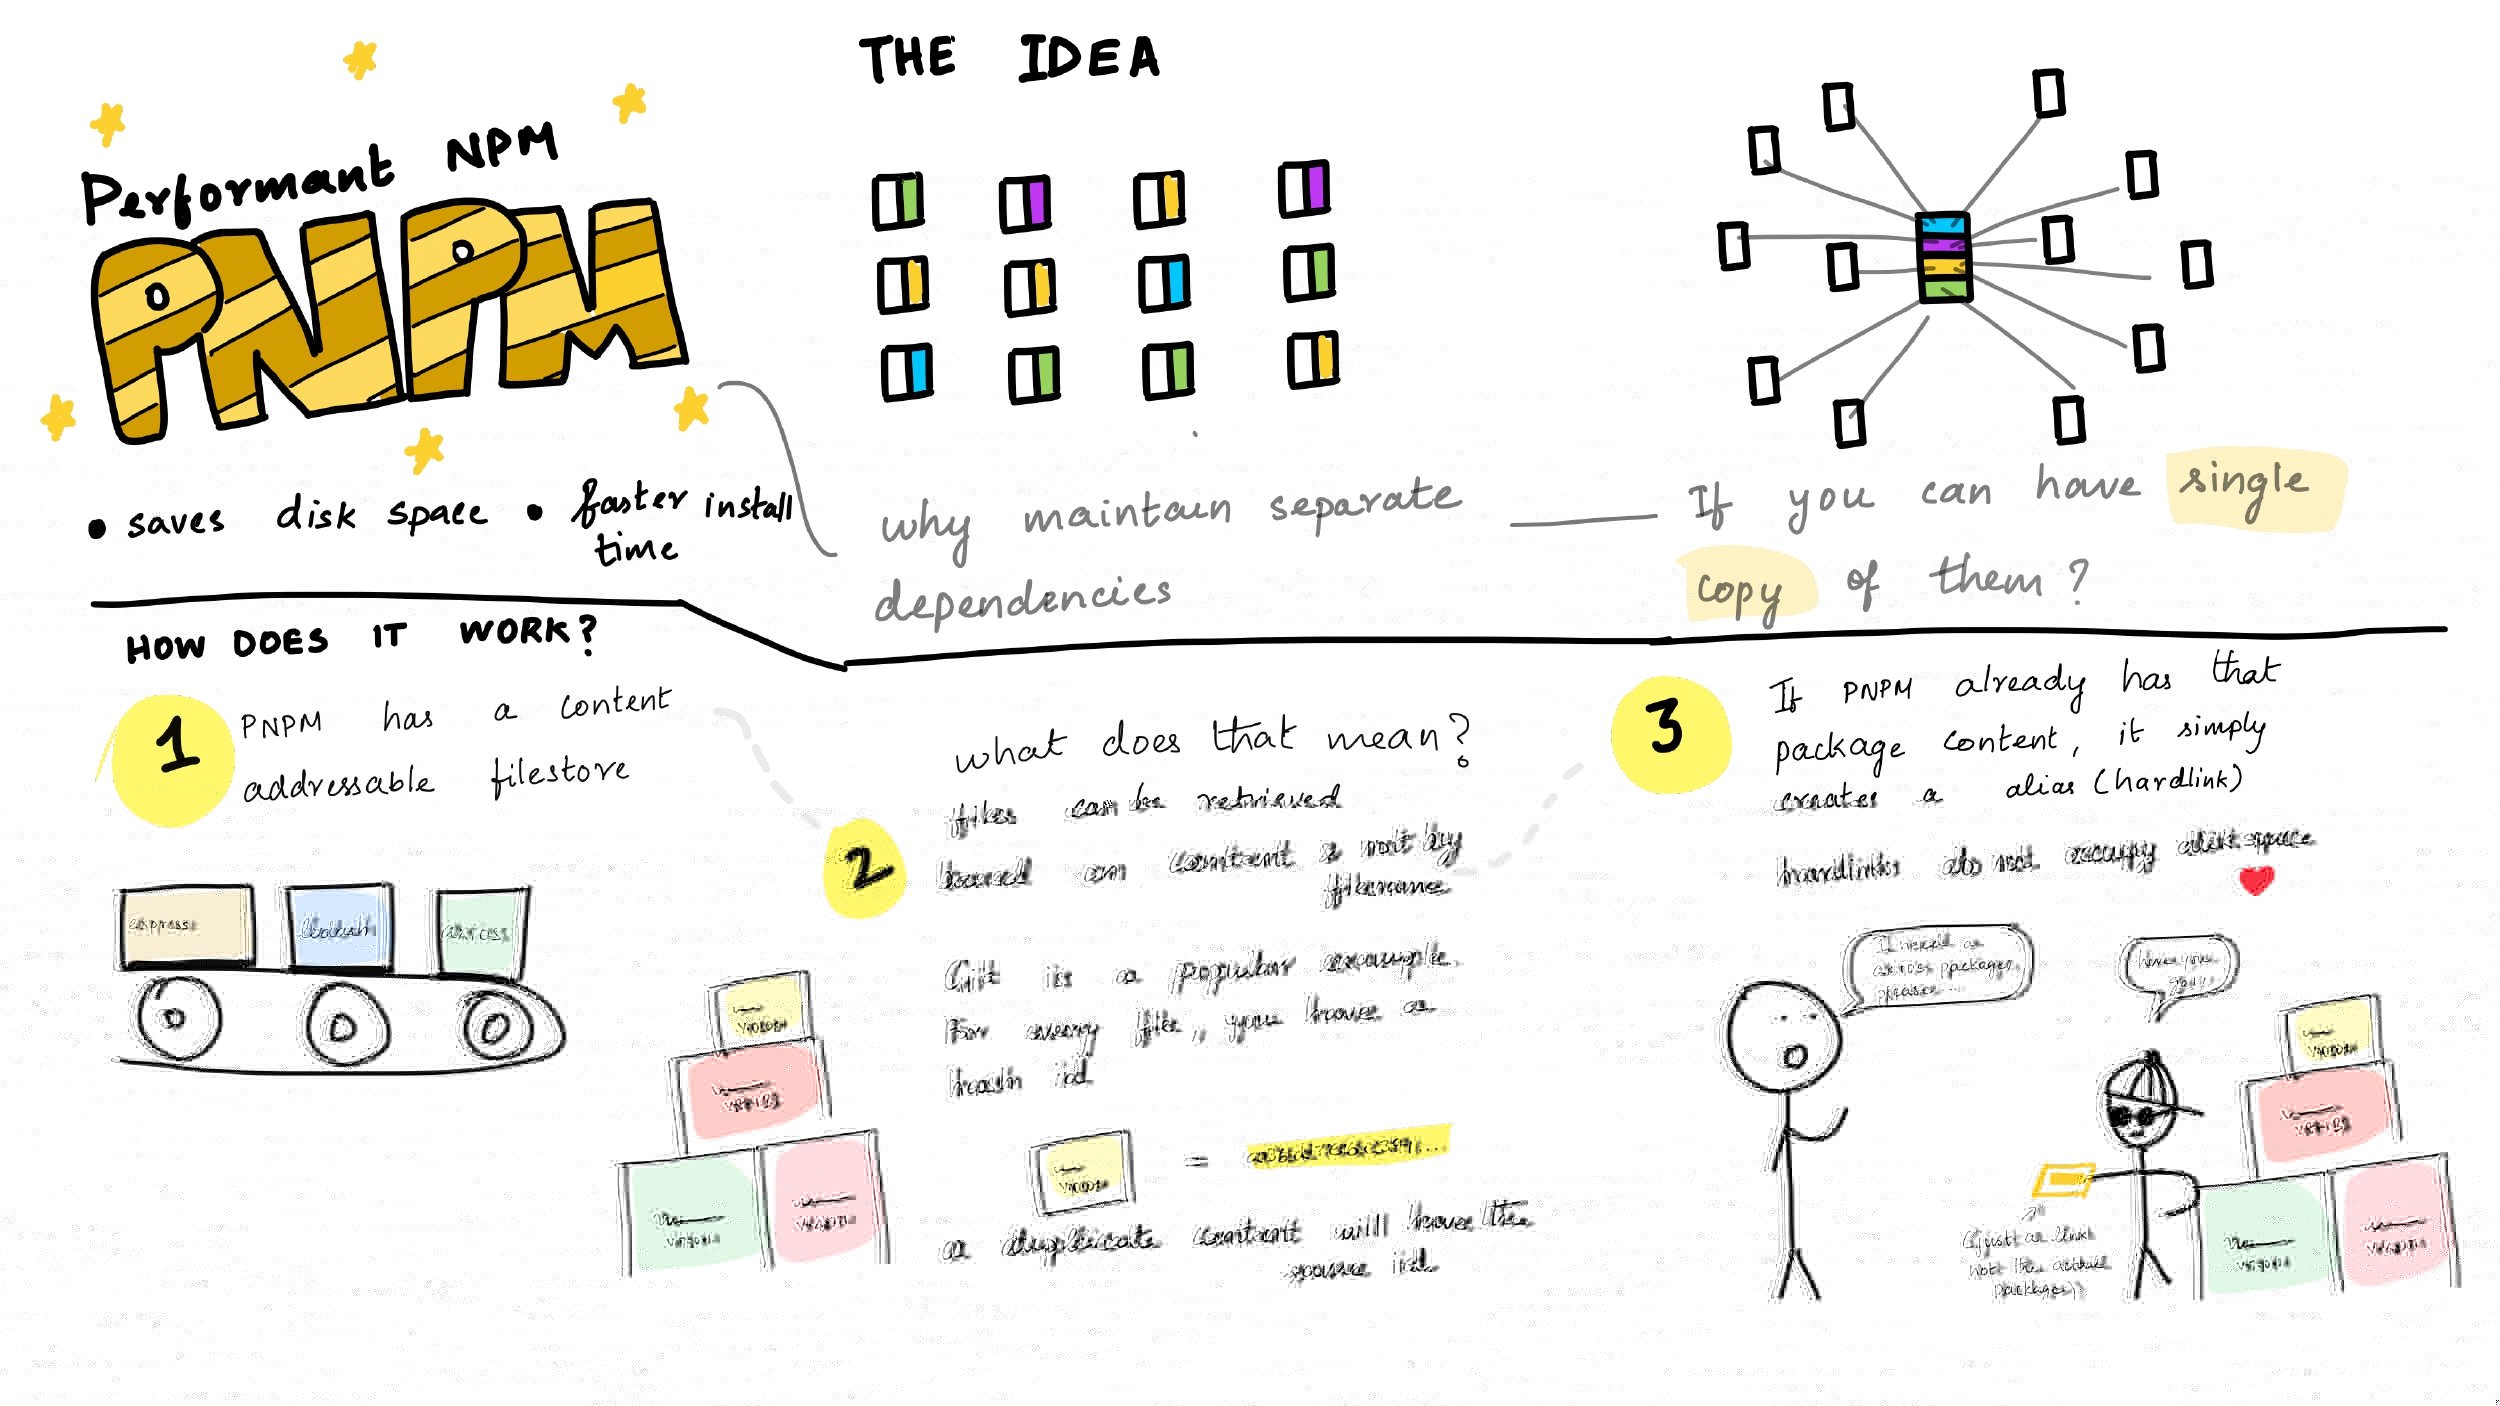 Performant NPM
PNPM
• saves disk space • faster install
time
THE IDEA
why maintain separate
dependencies
If you can have single
copy of them?
HOW DOES IT WORK?
1
PNPM has a content
addressable filestore
express
lodash
axios
2
what does that mean?
files can be retrieved
based on content & not by
filename
Git is a popular example.
For every file, you have a
hash id
=
a duplicate content will have the
same id
3
If PNPM already has that
package content, it simply
creates a alias (hardlink)
hardlinks do not occupy disk space
I need a
axios package,
please...
here you
go!
(just a link
not the actual
package)